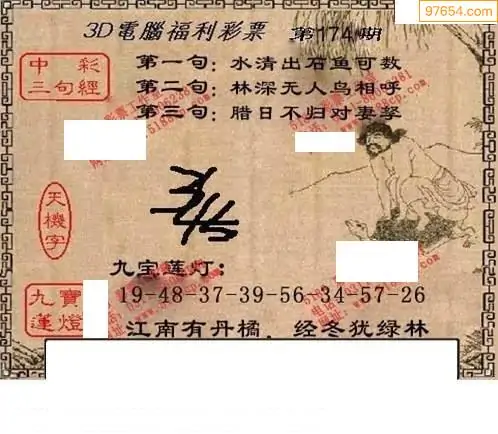 97654.com
3D電腦福利彩票 第174期
中彩
三句經
第一句：水清出石鱼可数
第二句：林深无人鸟相呼
第三句：腊日不归对妻孥
天機字
九宝莲灯：
九寶
蓮燈
19-48-37-39-56-34-57-26
江南有丹橘，经冬犹绿林